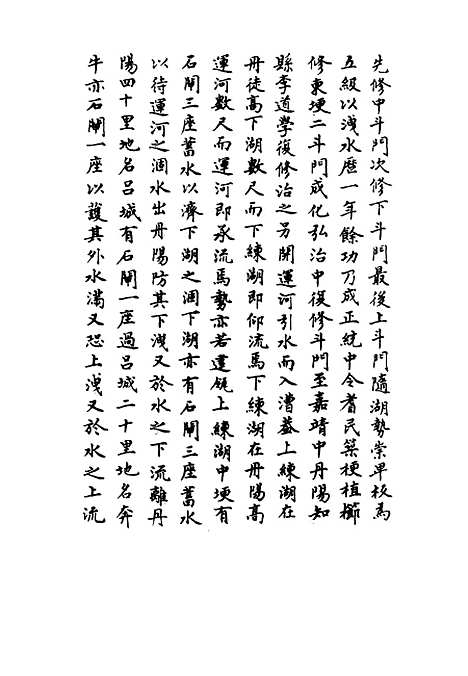 先修中斗門次修下斗門最後上斗門隨湖勢崇卑校馬
五級以淺水歷一年餘功乃成正統中令耆民築梗植櫛
修東埂二斗門成化弘治中復修斗門至嘉靖中丹陽知
縣李道學復修治之另開運河引水而入漕蓋上練湖在
丹徒高下湖數尺而下練湖即仰流焉下練湖在丹陽高
運河數尺而運河即承流焉勢亦若建瓴上練湖中埂有
石閘三座蓄水以濟下湖之涸下湖亦有石閘三座蓄水
以待運河之涸水出丹陽防其下洩又於水之下流離丹
陽四十里地名呂城有石閘一座過呂城二十里地名奔
牛亦石閘一座以護其外水滿又恐上洩又於水之上流